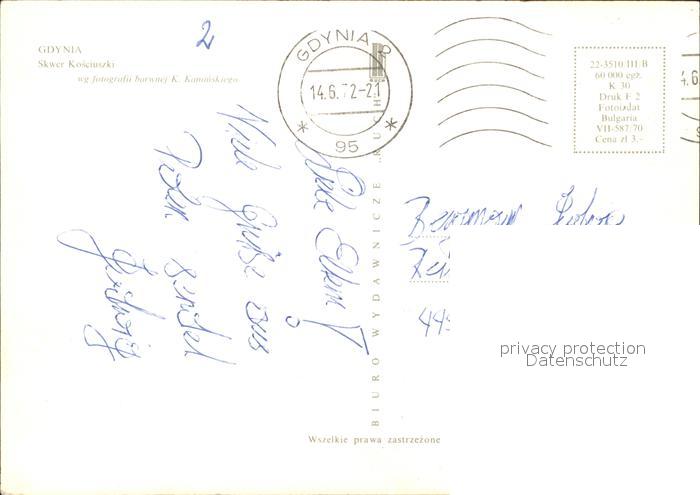 2
GDYNIA
Skwer Kościuszki
wg fotografii barwnej K. Kamińskiego
GDYNIA 2
14.6.72-21
* 95 *
22-3510/III/B
60 000 egz.
K 30
Druk F 2
Fotoizdat
Bulgaria
VII-587/70
Cena zł 3.-
4.6
BIURO WYDAWNICZE „RUCH"
Liebe Eltern!
Viele Grüße aus
Polen sendet
44
privacy protection
Datenschutz
Wszelkie prawa zastrzeżone